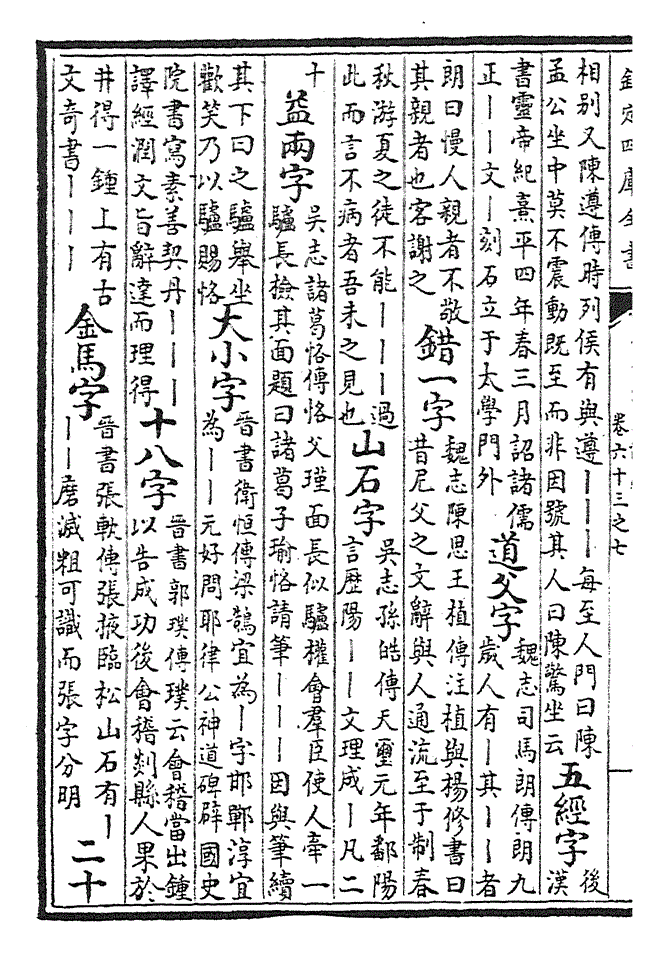 欽定四庫全書
卷六十三之七
相别又陳遵傳時列侯有與遵｜｜｜每至人門曰陳
孟公坐中莫不震動既至而非因號其人曰陳驚坐云
五經字
後
漢
書靈帝紀熹平四年春三月詔諸儒
正｜｜文｜刻石立于太學門外
道父字
魏志司馬朗傳朗九
歲人有｜其｜｜者
朗曰慢人親者不敬
其親者也客謝之
錯一字
魏志陳思王植傳注植與楊修書曰
昔尼父之文辭與人通流至于制春
秋游夏之徒不能｜｜｜過
此而言不病者吾未之見也
山石字
吳志孫皓傳天璽元年鄱陽
言歷陽｜｜文理成｜凡二
十
益兩字
吳志諸葛恪傳恪父瑾面長似驢權會羣臣使人牽一
驢長檢其面題曰諸葛子瑜恪請筆｜｜｜因與筆續
其下曰之驢舉坐
歡笑乃以驢賜恪
大小字
晉書衛恒傳梁鵠宜為｜字邯鄲淳宜
為｜｜元好問耶律公神道碑辟國史
院書寫素善契丹｜｜｜
譯經潤文旨辭達而理得
十八字
晉書郭璞傳璞云會稽當出鍾
以告成功後會稽剡縣人果於
井得一鍾上有古
文奇書｜｜｜
金馬字
晉書張軌傳張掖臨松山石有｜
｜｜磨滅粗可識而張字分明
二十